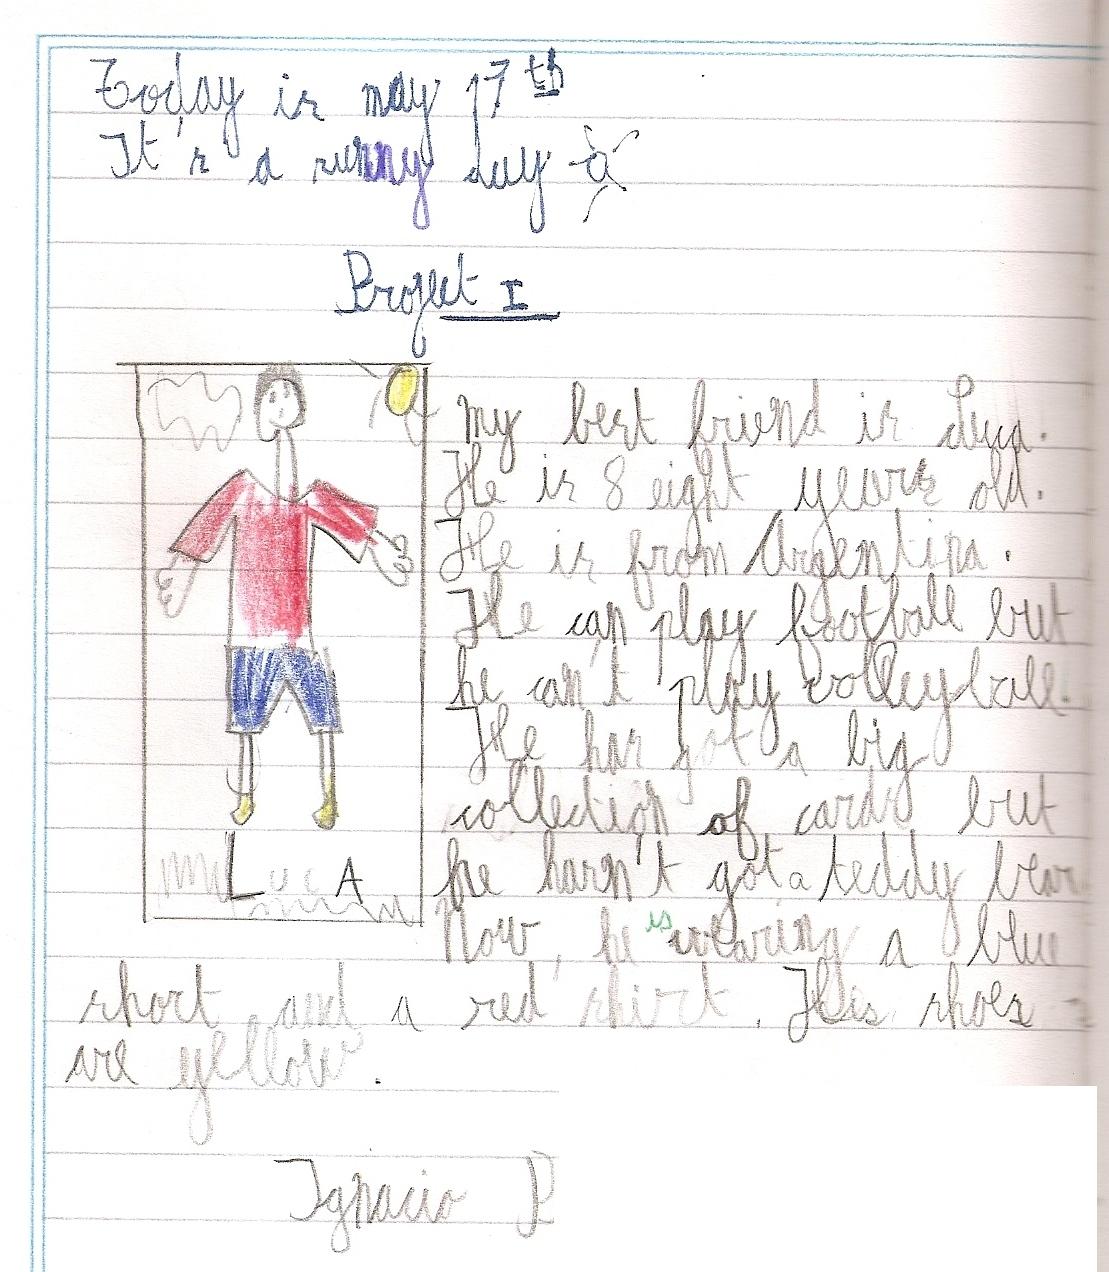 Today is may 17th
It's a sunny day
Project I
my best friend is Luca.
He is 8 eight years old.
He is from Argentina.
He can play football but
he can't play volleyball.
He has got a big
collection of cards but
he hasn't got a teddy bear
Now, he is wearing a blue
short and a red shirt. His shoes
are yellow.
LucA
Ignacio P